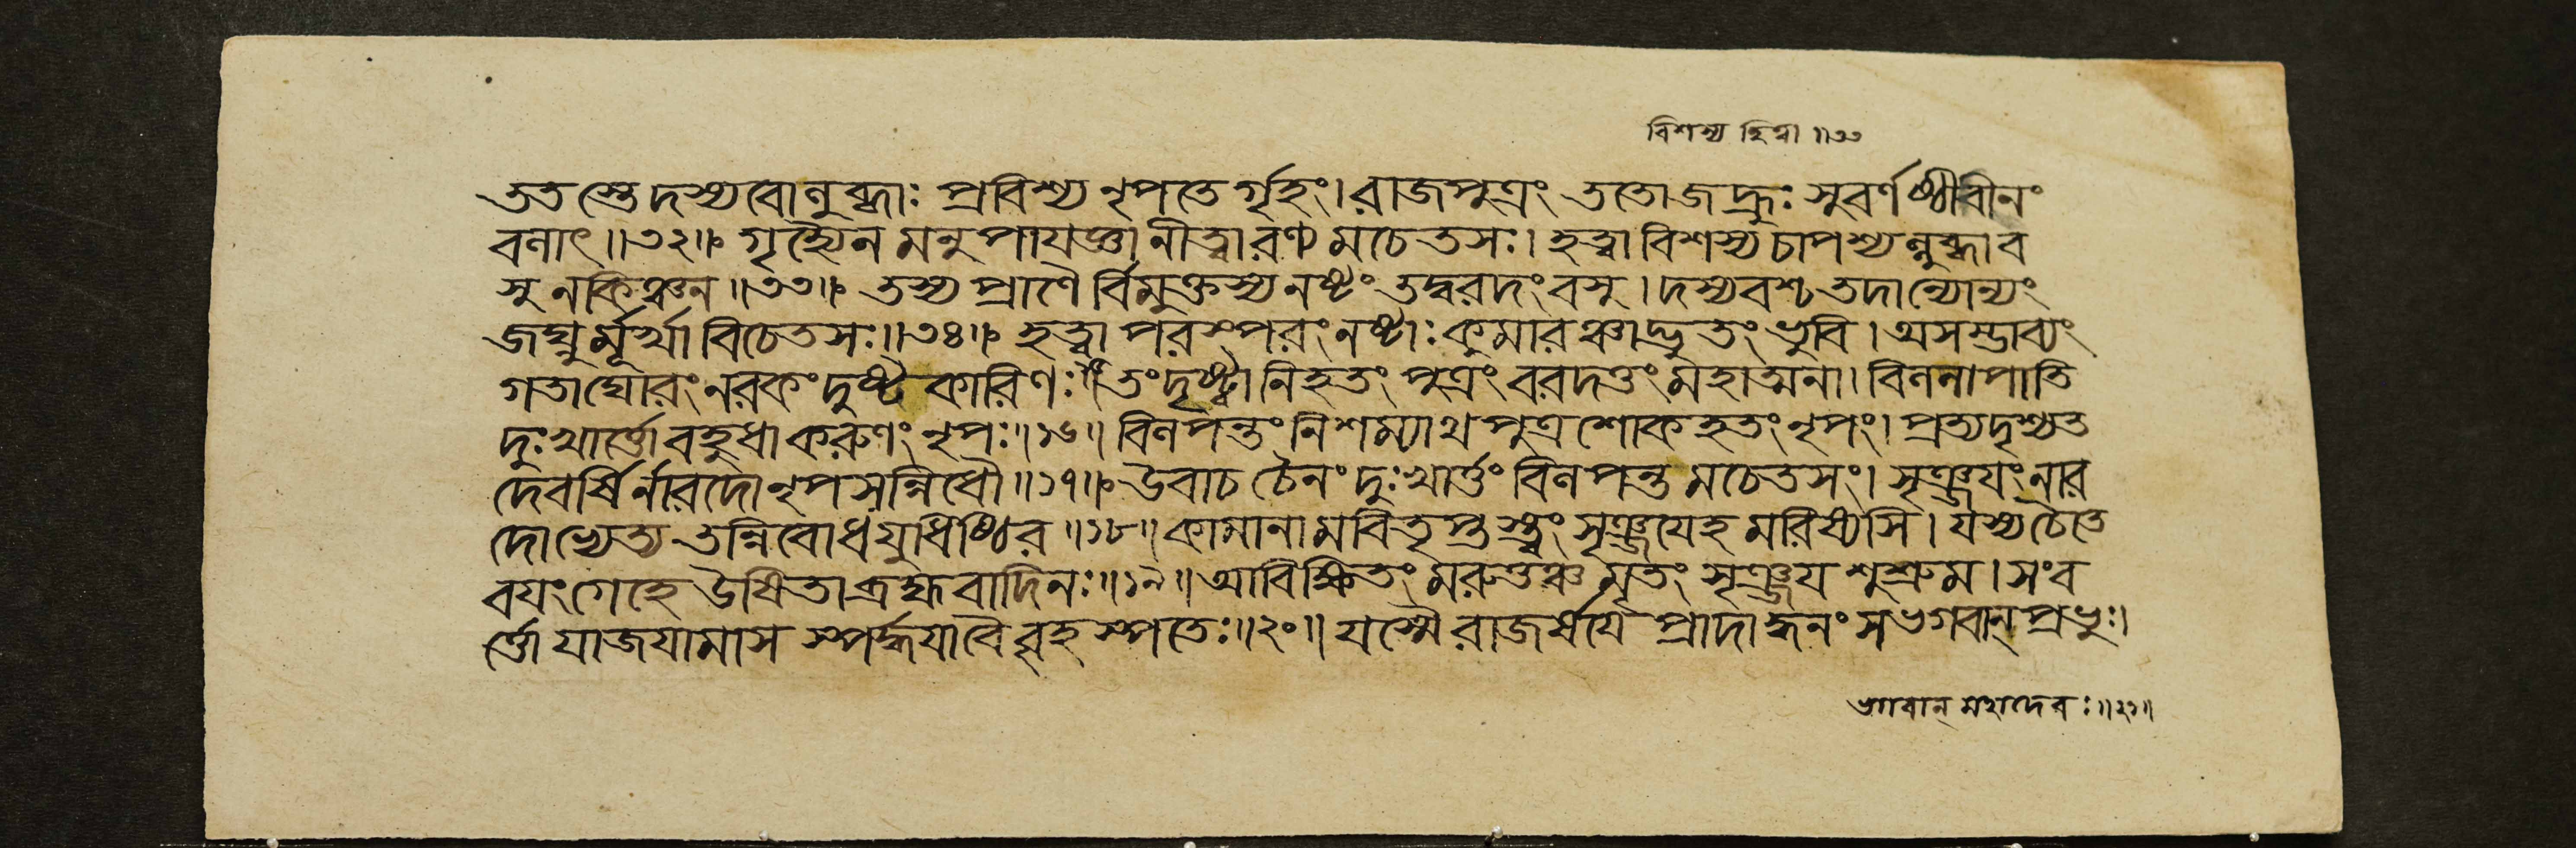 বিশস্য হিত্বা ॥৩৩
ততস্তে দস্যবো লুব্ধাঃ প্রবিশ্য নৃপতের্গৃহং। রাজপুত্রং ততো জহ্রুঃ সুবর্ণষ্ঠীবীনং
বলাৎ॥৩২॥ গৃহ্যৈন মনুপাযজ্ঞা নীত্বারণ্য মচেতসঃ। হত্বা বিশস্য চাপশ্যন্লুব্ধা ব
সু ন কিঞ্চন॥৩৩॥ তস্য প্রাণৈর্বিমুক্তস্য নষ্টং তদ্বরদং বসু। দস্যবশ্চ তদান্যোন্যং
জঘ্নুর্মূর্খা বিচেতসঃ॥৩৪॥ হত্বা পরস্পরং নষ্টাঃ কুমারঞ্চাদ্ভুতং ভুবি। অসম্ভাব্যং
গতা ঘোরং নরকং দুষ্ট কারিণঃ॥ তং দৃষ্ট্বা নিহতং পুত্রং বরদত্তং মহাত্মনা। বিললাপাতি
দুঃখার্ত্তো বহুধা করুণং নৃপঃ॥১৬॥ বিলপন্তং নিশম্যাথ পুত্রশোকহতং নৃপং। প্রত্যদৃশ্যত
দেবর্ষির্নারদো নৃপসন্নিধৌ॥১৭॥ উবাচ চৈনং দুঃখার্ত্তং বিলপন্ত মচেতসং। সৃঞ্জযং নার
দোভ্যেত্য তন্নিবোধ যুধিষ্ঠির॥১৮॥ কামানামবিতৃপ্তস্ত্বং সৃঞ্জযেহ মরিষ্যসি। যস্য চৈতে
বযং গেহে উষিতা ব্রহ্মবাদিনঃ॥১৯॥ আবিক্ষিতং মরুত্তঞ্চ মৃতং সৃঞ্জয শুশ্রুম। সংব
র্ত্তো যাজযামাস স্পর্দ্ধযা বৈ বৃহস্পতেঃ॥২০॥ যস্মৈ রাজর্ষযে প্রাদাদ্ধনং স ভগবান্ প্রভুঃ।
ভগবান্ মহাদেবঃ॥২১॥